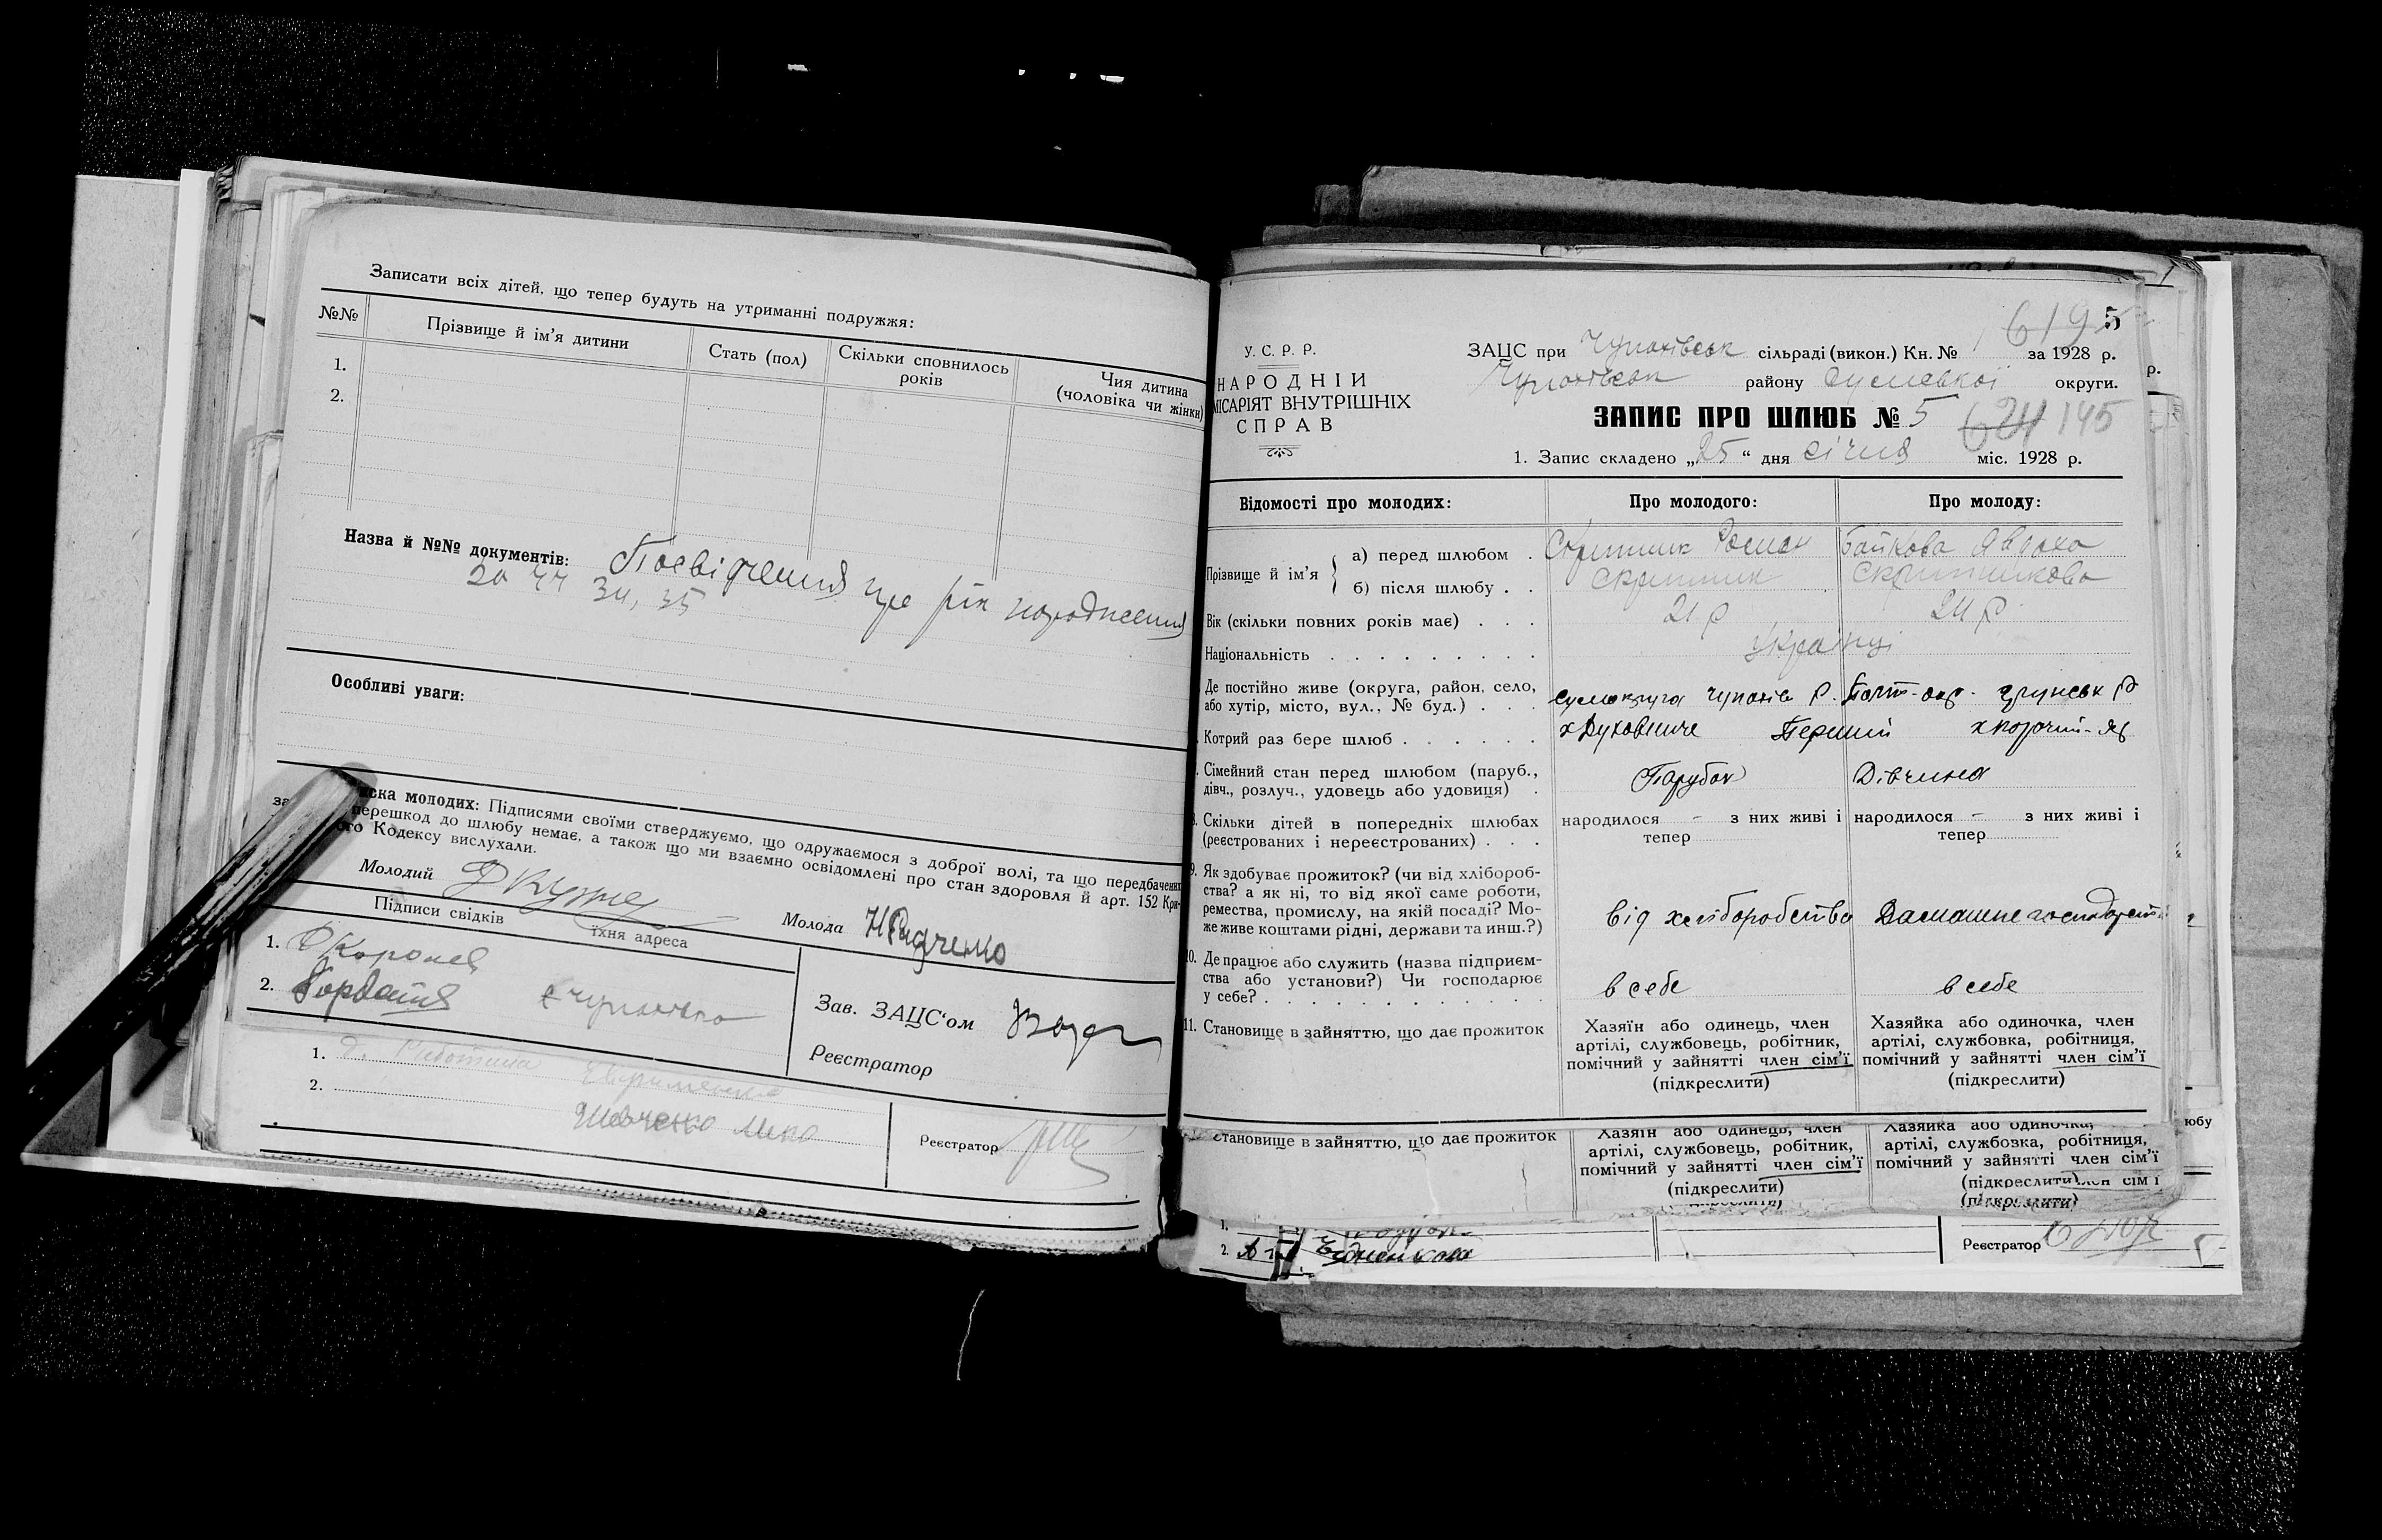 Записати всіх дітей, що тепер будуть на утриманні подружжя:
№№ Прізвище й ім'я дитини Стать (пол) Скільки сповнилось років Чия дитина (чоловіка чи жінки)
1.
2.
Назва й №№ документів: Посвідчення про рік народження
34, 35
Особливі уваги:
иска молодих: Підписями своїми стверджуємо, що одружаємося з доброї волі, та що передбачених
за перешкод до шлюбу немає, а також що ми взаємно освідомлені про стан здоровля й арт. 152 Кри-
ого Кодексу вислухали.
Молодий
Молода Н Радченко
Підписи свідків
їхня адреса
1.
2.
Зав. ЗАЦС'ом
Реєстратор
1.
2. Шевченко
Реєстратор
5
У. С. Р. Р.
НАРОДНІЙ
МІСАРІЯТ ВНУТРІШНІХ
СПРАВ
ЗАЦС при Чупахівськ сільраді (викон.) Кн. № за 1928 р.
Чупахівськ району Сумської округи.
ЗАПИС ПРО ШЛЮБ № 5
624 145
1. Запис складено „25" дня січня міс. 1928 р.
Відомості про молодих: Про молодого: Про молоду:
Прізвище й ім'я
а) перед шлюбом . Скритник Роман Байкова Явдоха
б) після шлюбу . . Скритник Скритникова
Вік (скільки повних років має) . . . 21 р 24 р.
Національність . . . . . . . . . Українці
Де постійно живе (округа, район, село,
або хутір, місто, вул., № буд.) . . . Сумокруга Чупахів Р. Полт-окр. Грунськ Р
Котрий раз бере шлюб . . . . . . Перший
Сімейний стан перед шлюбом (паруб.,
дівч., розлуч., удовець або удовиця) . Парубок Дівчина
Скільки дітей в попередніх шлюбах
(реєстрованих і нереєстрованих) . . .
народилося - з них живі і
тепер
народилося - з них живі і
тепер
9. Як здобуває прожиток? (чи від хлібороб-
ства? а як ні, то від якої саме роботи,
ремества, промислу, на якій посаді? Мо-
же живе коштами рідні, держави та инш.?)
від хліборобства Домашнє господарство
10. Де працює або служить (назва підприєм-
ства або установи?) Чи господарює
у себе? . . . . . . . . . . . . . в себе в себе
11. Становище в зайняттю, що дає прожиток
Хазяїн або одинець, член
артілі, службовець, робітник,
помічний у зайнятті член сім'ї
(підкреслити)
Хазяйка або одиночка, член
артілі, службовка, робітниця,
помічний у зайнятті член сім'ї
(підкреслити)
становище в зайняттю, що дає прожиток
Хазяїн або одинець, член
артілі, службовець, робітник,
помічний у зайнятті член сім'ї
(підкреслити)
Хазяйка або одиночка,
артілі, службовка, робітниця,
помічний у зайнятті член сім'ї
(підкреслити)
член сім'ї
(підкреслити)
1.
2.
Реєстратор
р.
юбу